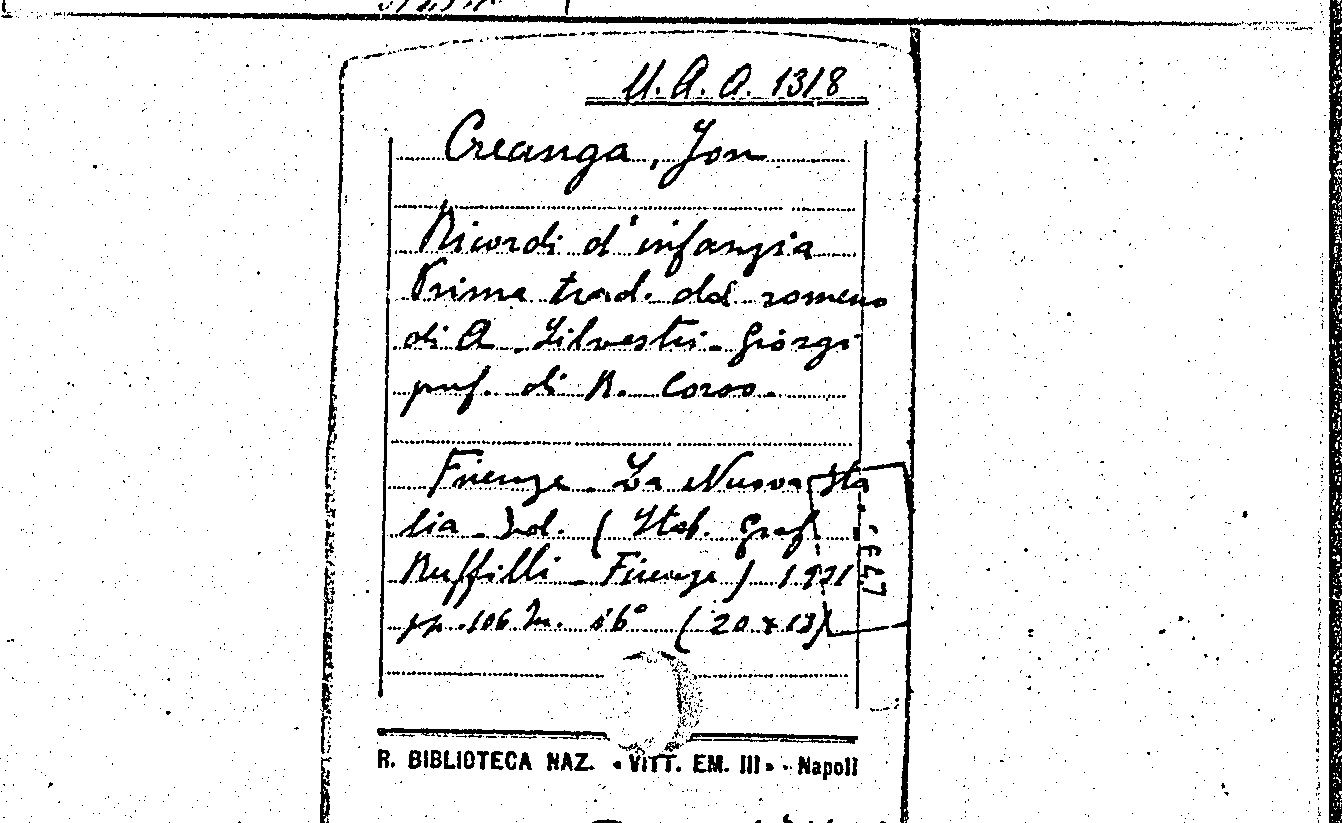 M. A. A. 1318
Creanga, Jon
Ricordi d'infanzia
Prima trad. dal romeno
di A. Silvestri-Giorgi
pref. di R. Corso.
Firenze - La Nuova Ita
lia - Ed. (Stab. Graf.
Ruffilli - Firenze) 1931
pp. 106 In. 16° (20x13)
R. BIBLIOTECA NAZ. «VITT. EM. III» - Napoli